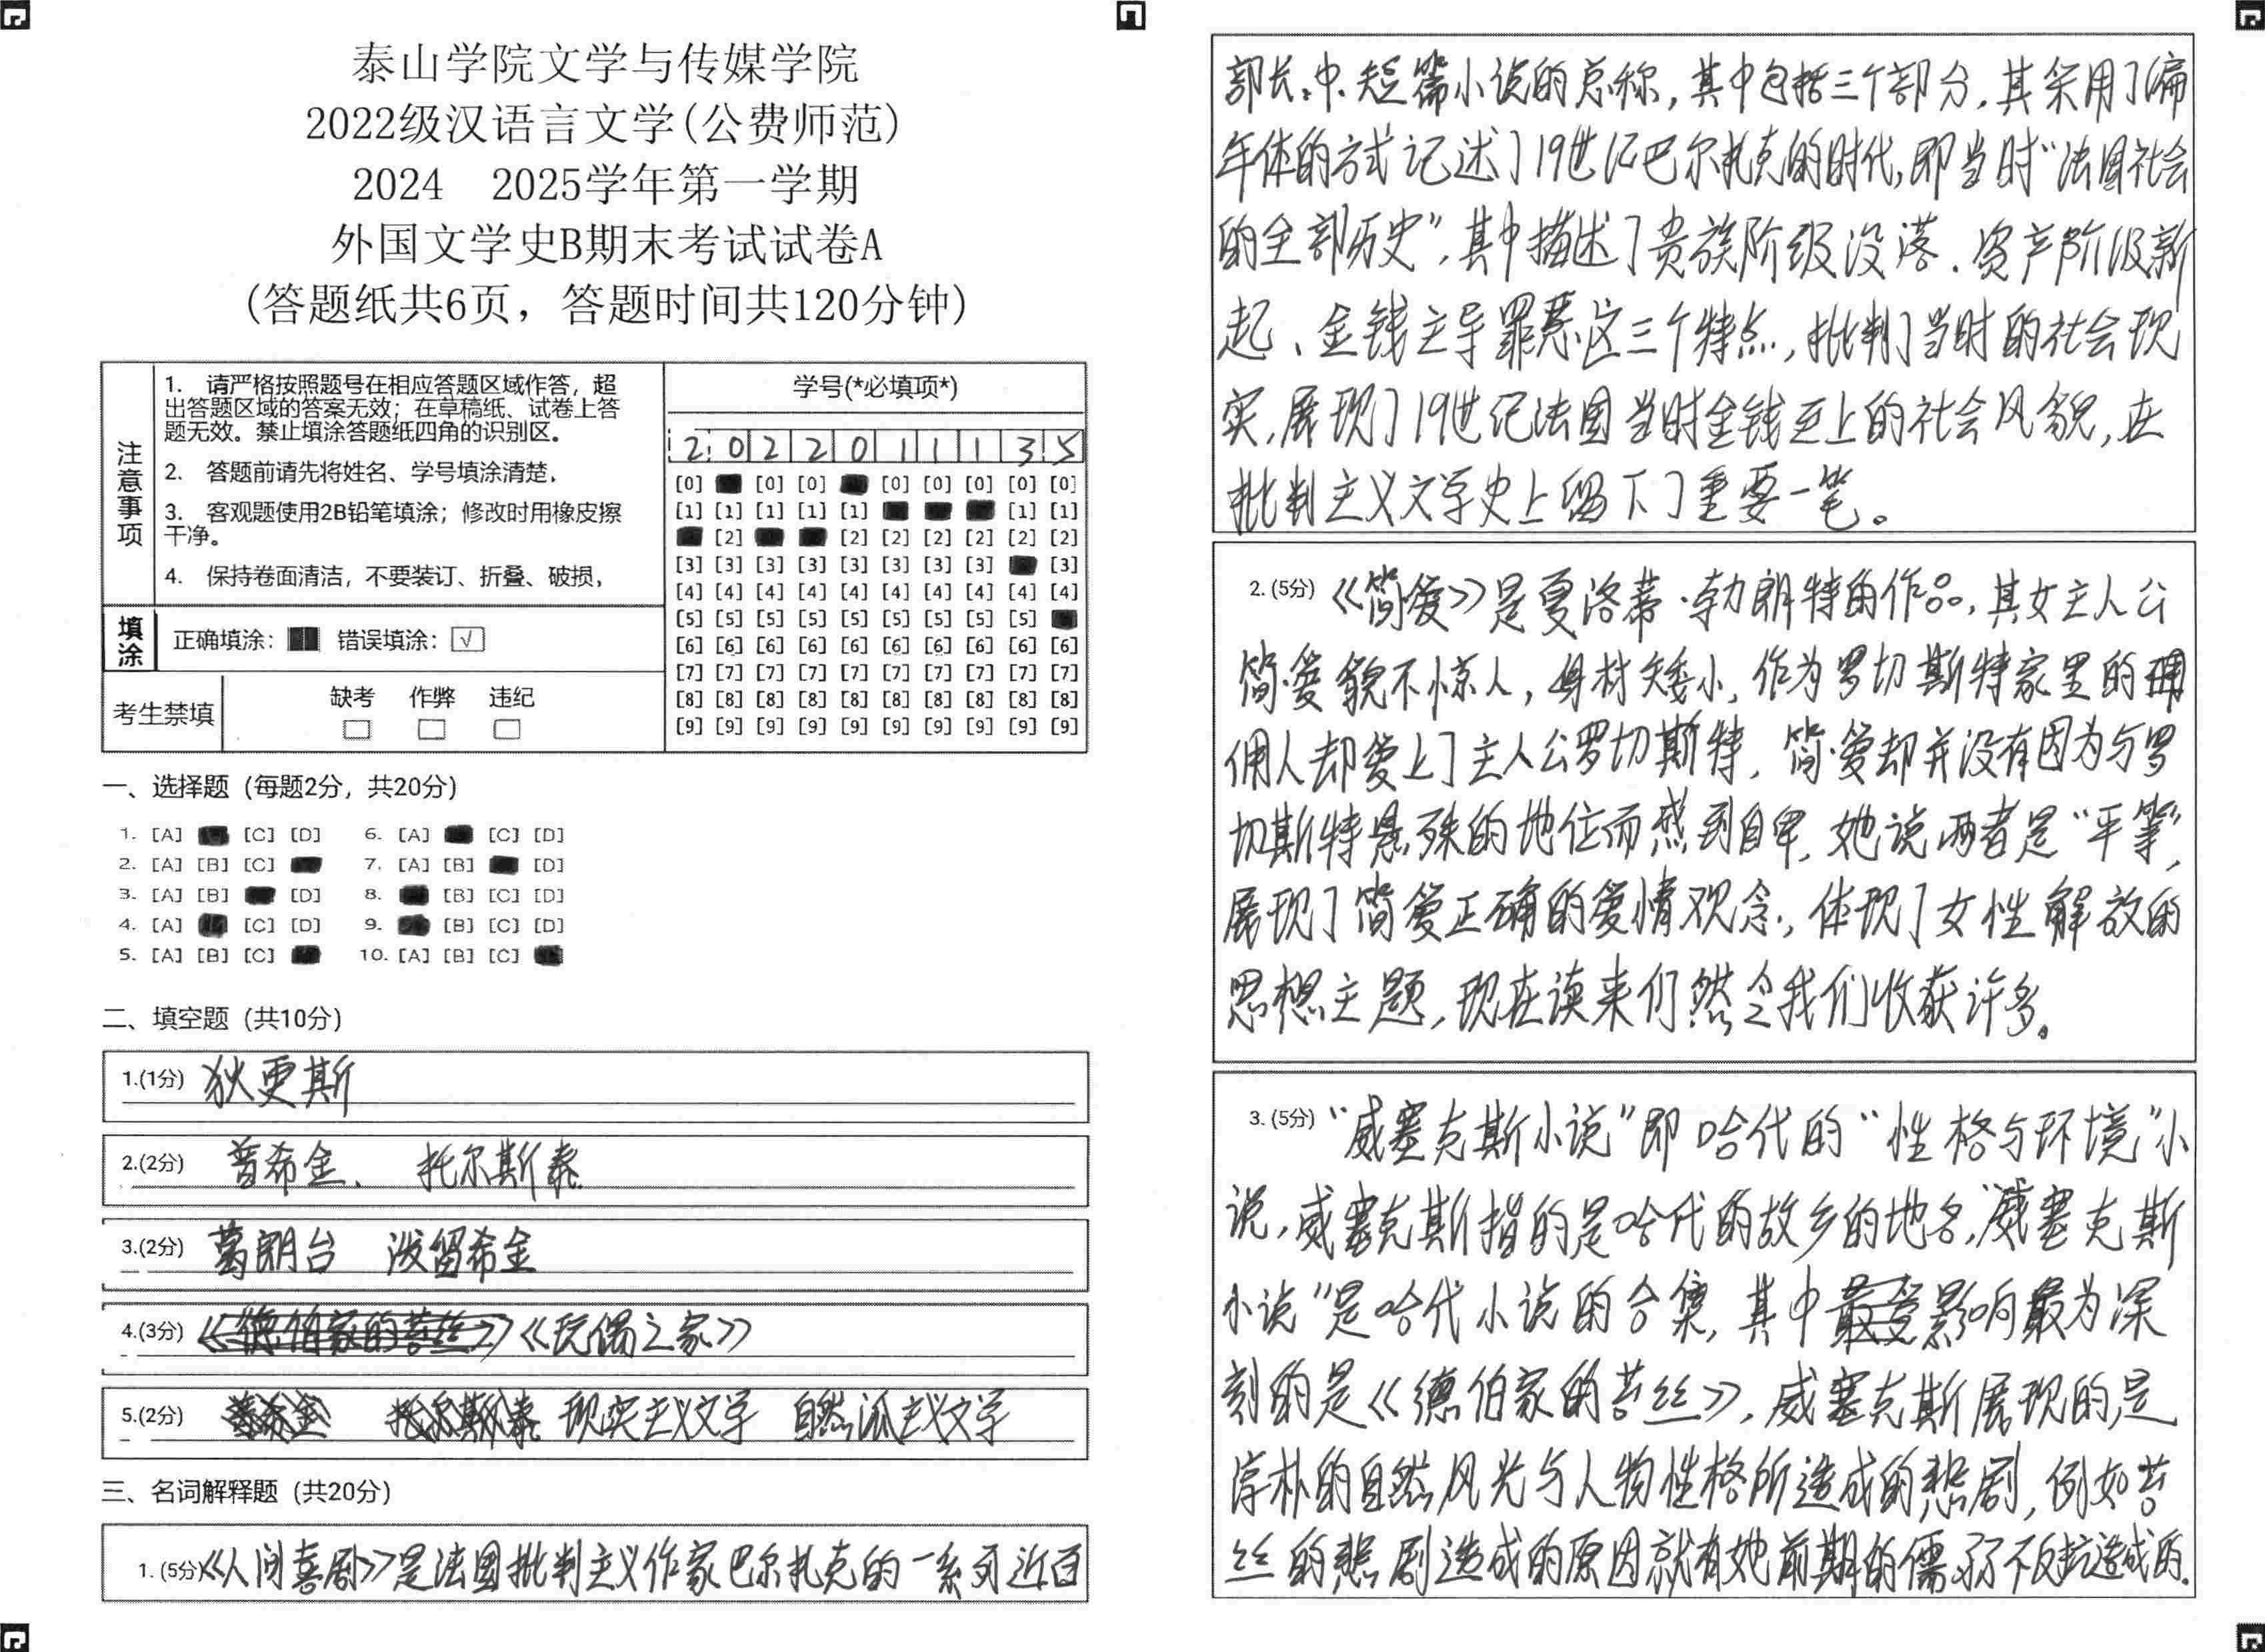 泰山学院文学与传媒学院
2022级汉语言文学(公费师范)
2024 2025学年第一学期
外国文学史B期末考试试卷A
(答题纸共6页，答题时间共120分钟)
注意事项
1. 请严格按照题号在相应答题区域作答，超
出答题区域的答案无效；在草稿纸、试卷上答
题无效。禁止填涂答题纸四角的识别区。
2. 答题前请先将姓名、学号填涂清楚，
3. 客观题使用2B铅笔填涂；修改时用橡皮擦
干净。
4. 保持卷面清洁，不要装订、折叠、破损，
填涂
正确填涂： 错误填涂：[√]
考生禁填
缺考 作弊 违纪
学号(*必填项*)
2 0 2 2 0 1 1 1 3 5
[0] [0] [0] [0] [0] [0] [0] [0]
[1] [1] [1] [1] [1] [1] [1]
[2] [2] [2] [2] [2] [2] [2]
[3] [3] [3] [3] [3] [3] [3] [3] [3]
[4] [4] [4] [4] [4] [4] [4] [4] [4] [4]
[5] [5] [5] [5] [5] [5] [5] [5] [5]
[6] [6] [6] [6] [6] [6] [6] [6] [6] [6]
[7] [7] [7] [7] [7] [7] [7] [7] [7] [7]
[8] [8] [8] [8] [8] [8] [8] [8] [8] [8]
[9] [9] [9] [9] [9] [9] [9] [9] [9] [9]
一、选择题 (每题2分，共20分)
1. [A] [C] [D] 6. [A] [C] [D]
2. [A] [B] [C] 7. [A] [B] [D]
3. [A] [B] [D] 8. [B] [C] [D]
4. [A] [C] [D] 9. [B] [C] [D]
5. [A] [B] [C] 10. [A] [B] [C]
二、填空题 (共10分)
1.(1分) 狄更斯
2.(2分) 普希金、 托尔斯泰
3.(2分) 葛朗台 泼留希金
4.(3分) 《德伯家的苔丝》《玩偶之家》
5.(2分) 普希金 托尔斯泰 现实主义文学 自然派主义文学
三、名词解释题 (共20分)
1. (5分)《人间喜剧》是法国批判主义作家巴尔扎克的一系列近百
部长、中、短篇小说的总称，其中包括三个部分，其采用了编
年体的方式记述了19世纪巴尔扎克的时代，即当时“法国社会
的全部历史”，其中描述了贵族阶级没落、资产阶级新
起、金钱主导罪恶这三个特点，批判了当时的社会现
实，展现了19世纪法国当时金钱至上的社会风貌，在
批判主义文学史上留下了重要一笔。
2. (5分)《简爱》是夏洛蒂·勃朗特的作品，其女主人公
简·爱貌不惊人，身材矮小，作为罗切斯特家里的
佣人却爱上了主人公罗切斯特，简·爱却并没有因为与罗
切斯特悬殊的地位而感到自卑，她说两者是“平等”，
展现了简爱正确的爱情观念，体现了女性解放的
思想主题，现在读来仍然令我们收获许多。
3. (5分)“威塞克斯小说”即哈代的“性格与环境”小
说，威塞克斯指的是哈代的故乡的地名，“威塞克斯
小说”是哈代小说的合集，其中最受影响最为深
刻的是《德伯家的苔丝》，威塞克斯展现的是
淳朴的自然风光与人物性格所造成的悲剧，例如苔
丝的悲剧造成的原因就有她前期的懦弱不反抗造成的.